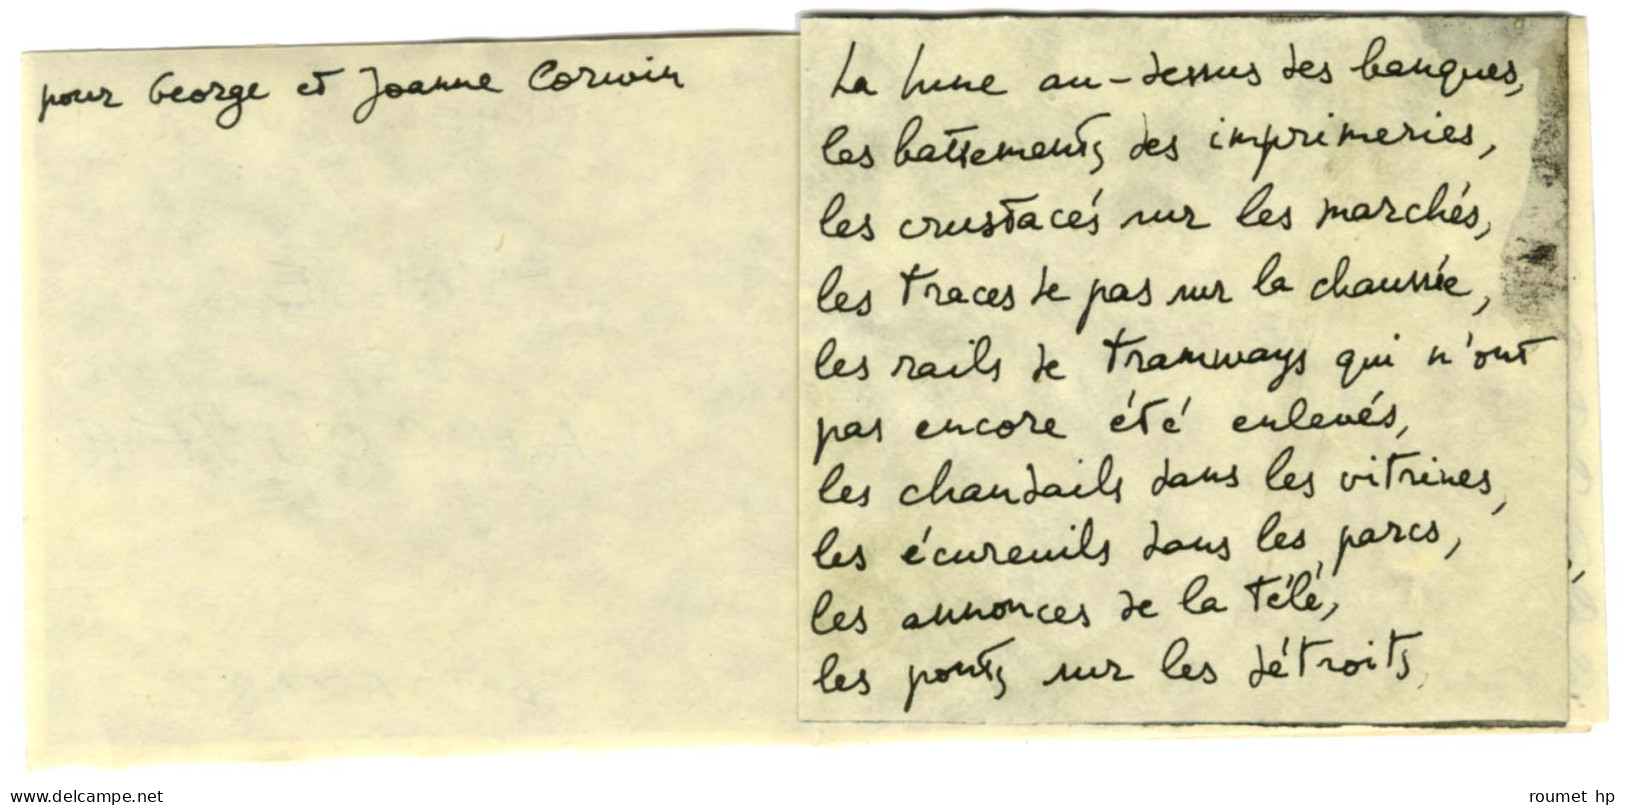 pour George et Joanne Corwin
La lune au-dessus des banques,
les battements des imprimeries,
les crustacés sur les marchés,
les traces de pas sur la chaussée,
les rails de tramways qui n'ont
pas encore été enlevés,
les chandails dans les vitrines,
les écureuils dans les parcs,
les annonces de la télé,
les ponts sur les détroits,
www.delcampe.net
roumet hp